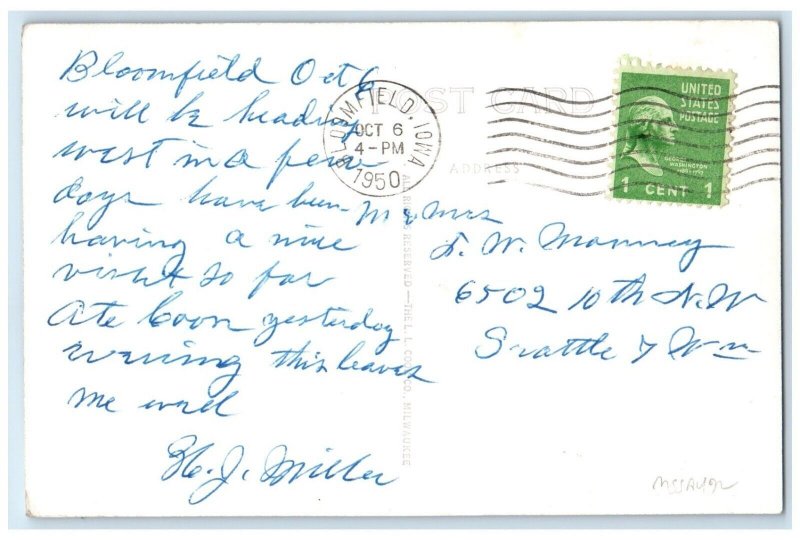 Bloomfield Oct 6
will be heading
west in a few
days have been
having a nice
visit so far
Ate Coon yesterday
evening this leaves
me well
H. J. Miller
POST CARD
ADDRESS
BLOOMFIELD, IOWA
OCT 6
4-PM
1950
UNITED
STATES
POSTAGE
GEORGE
WASHINGTON
1 CENT 1
M & Mrs
6502 10th N. W
Seattle 7 Wn
ALL RIGHTS RESERVED—THE L. L. COOK CO. MILWAUKEE